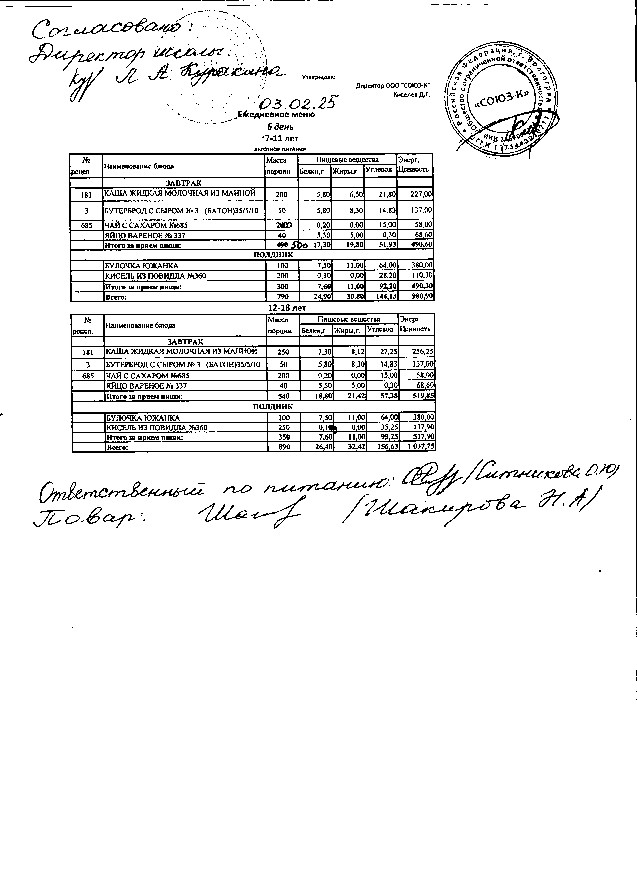 Согласовано:
Директор школы:
Л. А. Куракина
Утверждаю:
Директор ООО "СОЮЗ-К"
Киселев Д.Г.
«СОЮЗ-К»
03.02.25
Ежедневное меню
6 день
7-11 лет
№ рецеп. Наименование блюда Масса порции Пищевые вещества Энерг. Ценность
Белки,г Жиры,г Углевод
ЗАВТРАК
181 КАША ЖИДКАЯ МОЛОЧНАЯ ИЗ МАННОЙ 200 5,80 6,50 21,80 227,00
3 БУТЕРБРОД С СЫРОМ № 3 (БАТОН)35/5/10 50 5,80 8,30 14,83 137,00
685 ЧАЙ С САХАРОМ №685 200 0,20 0,00 15,00 58,00
ЯЙЦО ВАРЕНОЕ № 337 40 5,50 5,00 0,30 68,60
Итого за прием пищи: 490 500 17,30 19,80 51,93 490,60
ПОЛДНИК
БУЛОЧКА ЮЖАНКА 100 7,50 11,00 64,00 380,00
КИСЕЛЬ ИЗ ПОВИДЛА №360 200 0,10 0,00 28,20 110,30
Итого за прием пищи: 300 7,60 11,00 92,20 490,30
Всего: 790 24,90 30,80 144,13 980,90
12-18 лет
№ рецеп. Наименование блюда Масса порции Пищевые вещества Энерг. Ценность
Белки,г Жиры,г. Углевод
ЗАВТРАК
181 КАША ЖИДКАЯ МОЛОЧНАЯ ИЗ МАННОЙ 250 7,30 8,12 27,25 256,25
3 БУТЕРБРОД С СЫРОМ № 3 (БАТОН)35/5/10 50 5,80 8,30 14,83 137,00
685 ЧАЙ С САХАРОМ №685 200 0,20 0,00 15,00 58,00
ЯЙЦО ВАРЕНОЕ № 337 40 5,50 5,00 0,30 68,60
Итого за прием пищи: 540 18,80 21,42 57,38 519,85
ПОЛДНИК
БУЛОЧКА ЮЖАНКА 100 7,50 11,00 64,00 380,00
КИСЕЛЬ ИЗ ПОВИДЛА №360 250 0,10 0,00 35,25 137,90
Итого за прием пищи: 350 7,60 11,00 99,25 517,90
Всего: 890 26,40 32,42 156,63 1 037,75
Ответственный по питанию: /Ситникова О.Ю/
Повар: /Шакирова Н.А/